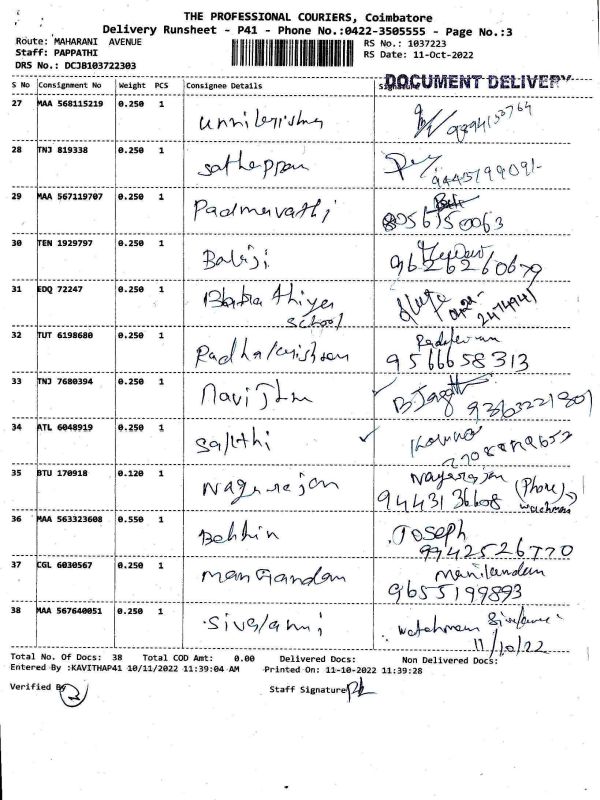 THE PROFESSIONAL COURIERS, Coimbatore
Delivery Runsheet - P41 - Phone No.:0422-3505555 - Page No.:3
Route: MAHARANI AVENUE
RS No.: 1037223
Staff: PAPPATHI
RS Date: 11-Oct-2022
DRS No.: DCJB103722303
DOCUMENT DELIVERY
S No Consignment No Weight PCS Consignee Details Signature
27 MAA 568115219 0.250 1
28 TNJ 819338 0.250 1 Sathappan
29 MAA 567119707 0.250 1 Padmavathi 8056150063
30 TEN 1929797 0.250 1 Balaji 9626260679
31 EDQ 72247 0.250 1 school 0422-2474941
32 TUT 6198680 0.250 1 Radhakrishnan 9566658313
33 TNJ 7680394 0.250 1
34 ATL 6048919 0.250 1 Sakthi
35 BTU 170918 0.120 1 Nagarajan Nagarajan
9443136608 (Phone) watchman
36 MAA 563323608 0.550 1 Joseph
9942526770
37 CGL 6030567 0.250 1 Manikandan
9655199893
38 MAA 567640051 0.250 1 Sivasami watchman
11/10/22
Total No. Of Docs: 38 Total COD Amt: 0.00 Delivered Docs: Non Delivered Docs:
Entered By :KAVITHAP41 10/11/2022 11:39:04 AM Printed On: 11-10-2022 11:39:28
Verified By Staff Signature